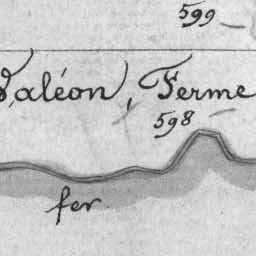 599
Valéon, Ferme
598
fer